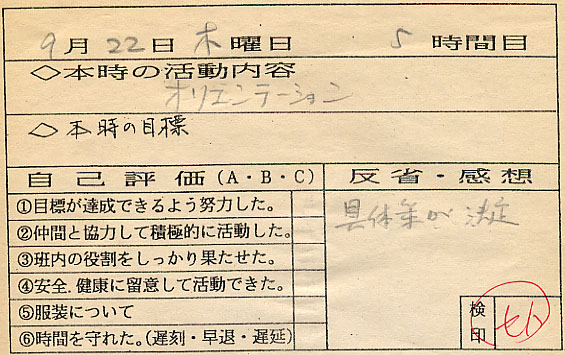 9月22日 木曜日 5時間目
◇本時の活動内容
オリエンテーション
◇本時の目標
自己評価(A・B・C)
①目標が達成できるよう努力した。
②仲間と協力して積極的に活動した。
③班内の役割をしっかり果たせた。
④安全、健康に留意して活動できた。
⑤服装について
⑥時間を守れた。(遅刻・早退・遅延)
反省・感想
具体案が決定
検印